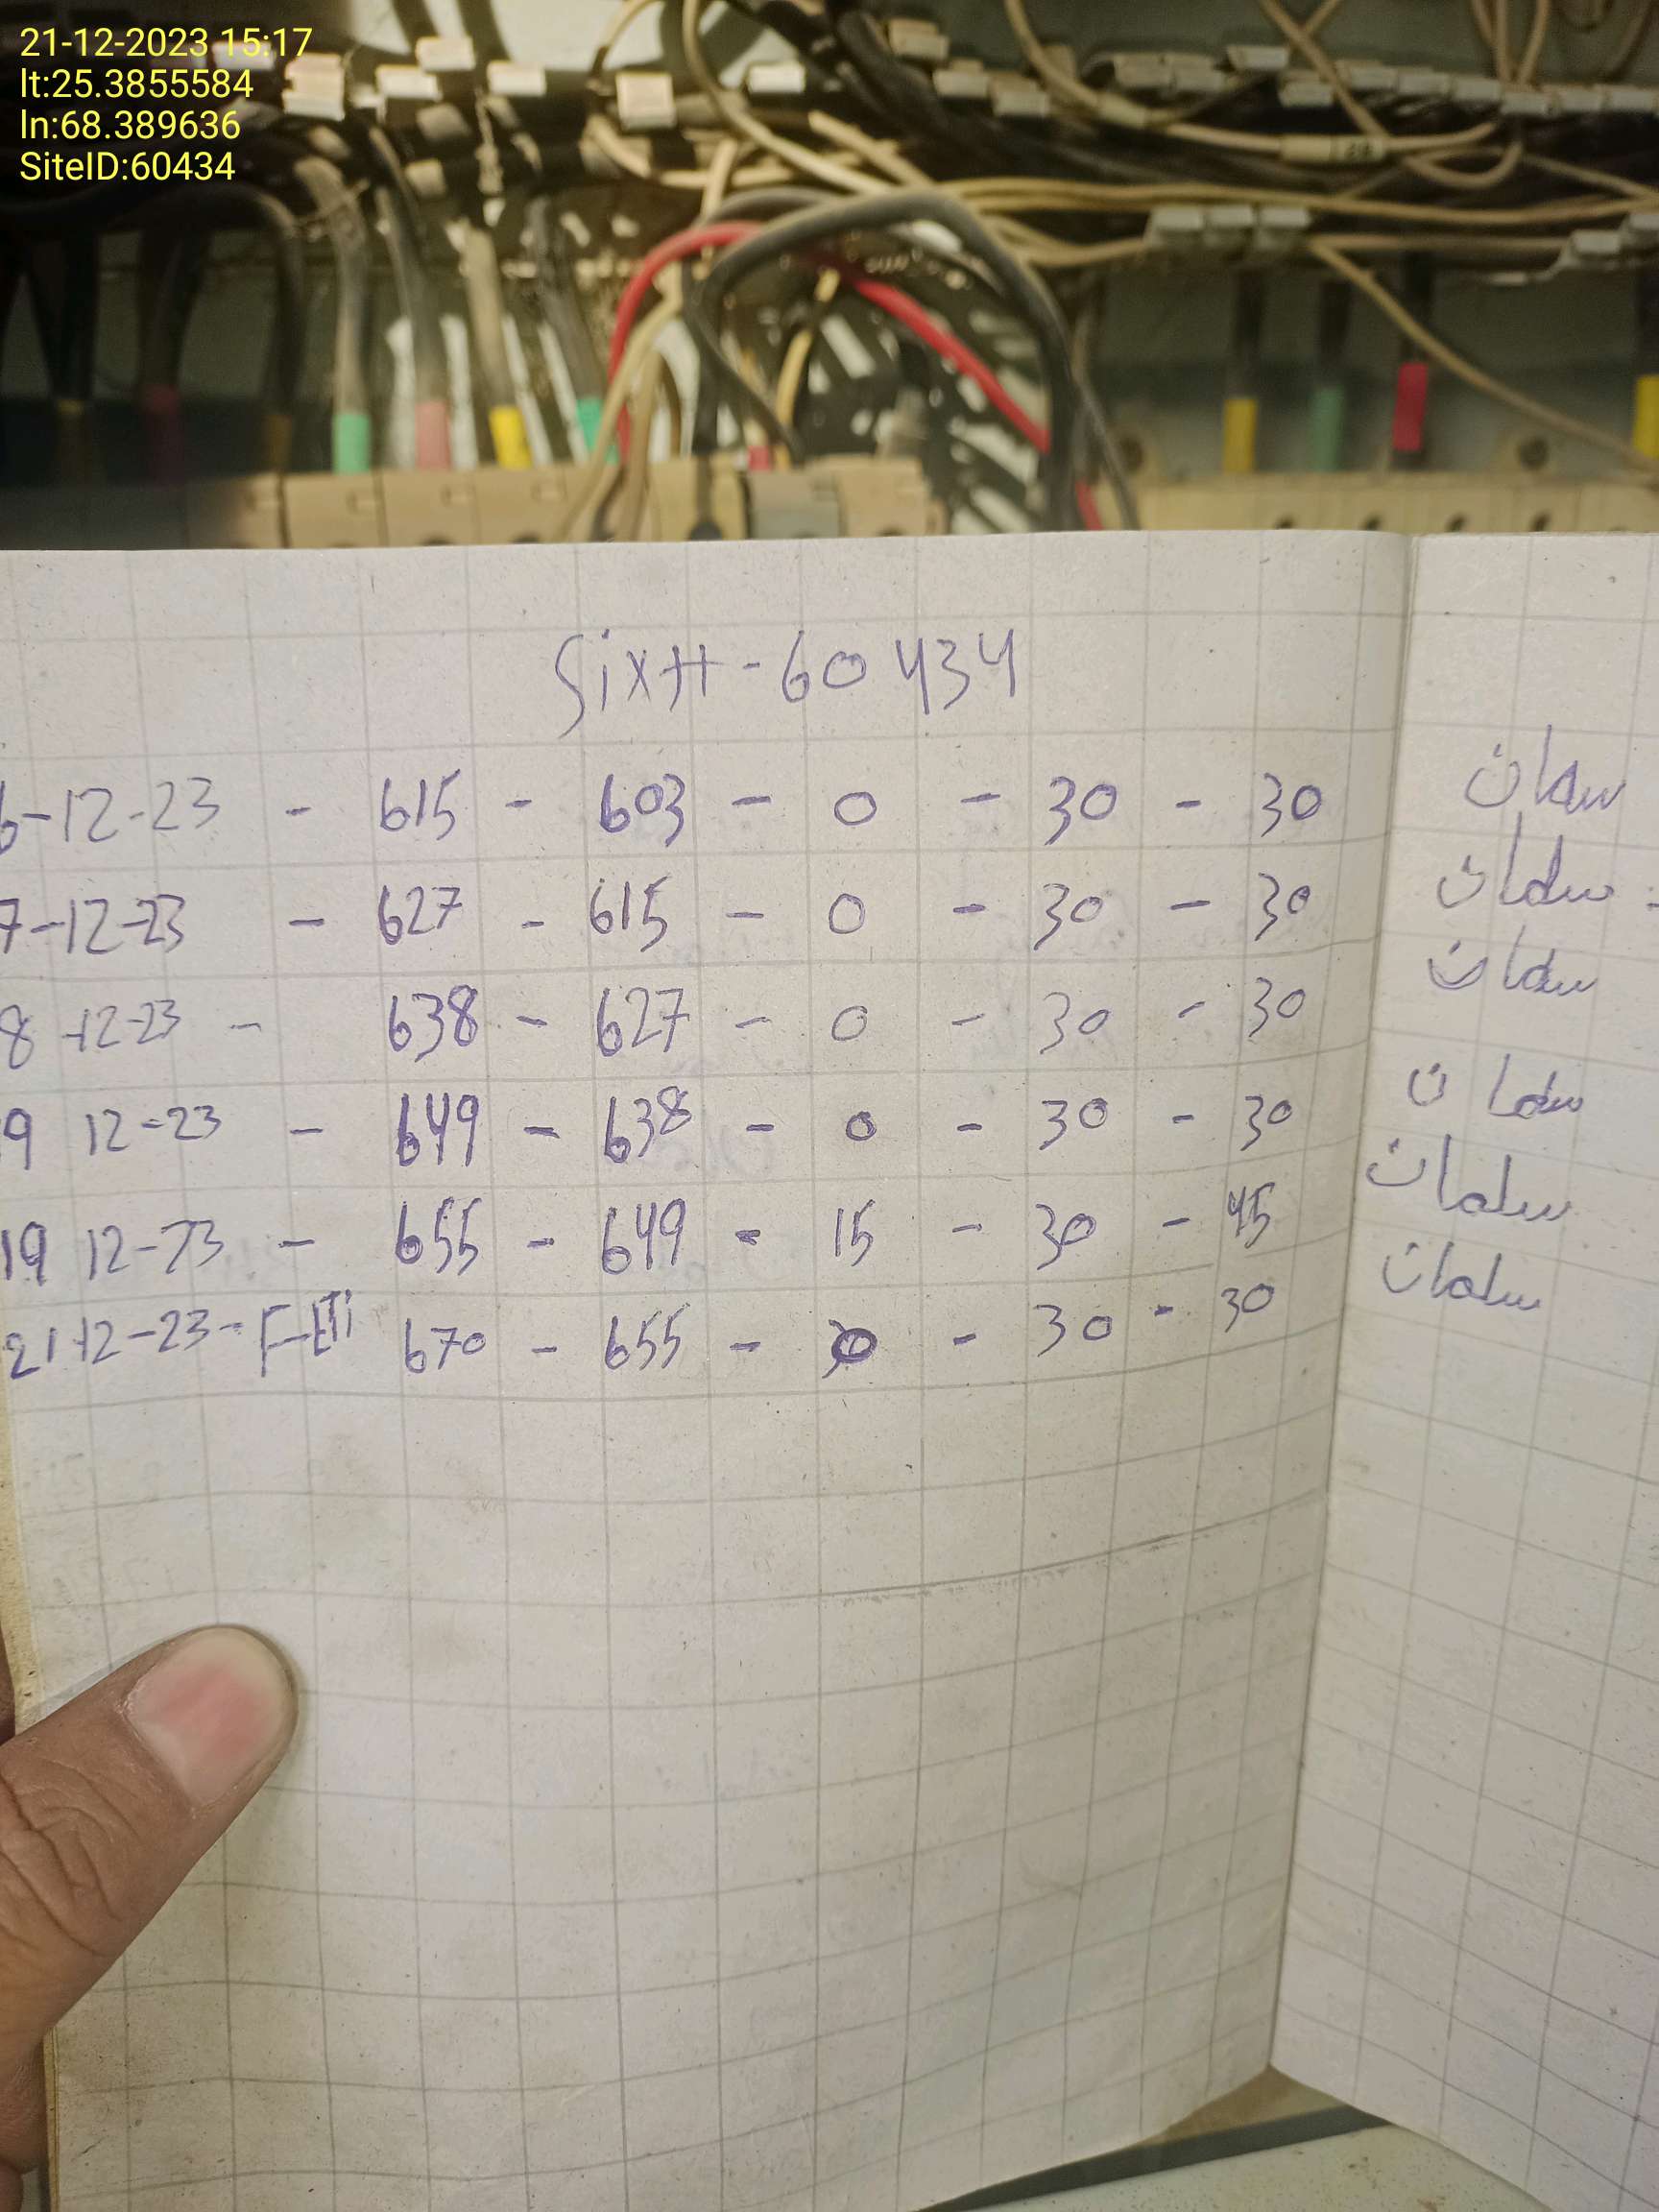 21-12-2023 15:17
lt:25.3855584
ln:68.389636
SiteID:60434
60434
6-12-23 - 615 - 603 - 0 - 30 - 30 سلمان
7-12-23 - 627 - 615 - 0 - 30 - 30 سلمان
8-12-23 - 638 - 627 - 0 - 30 - 30 سلمان
9 12-23 - 649 - 638 - 0 - 30 - 30 سلمان
19 12-23 - 655 - 649 - 15 - 30 - 45 سلمان
21 12-23 - 670 - 655 - 0 - 30 - 30 سلمان